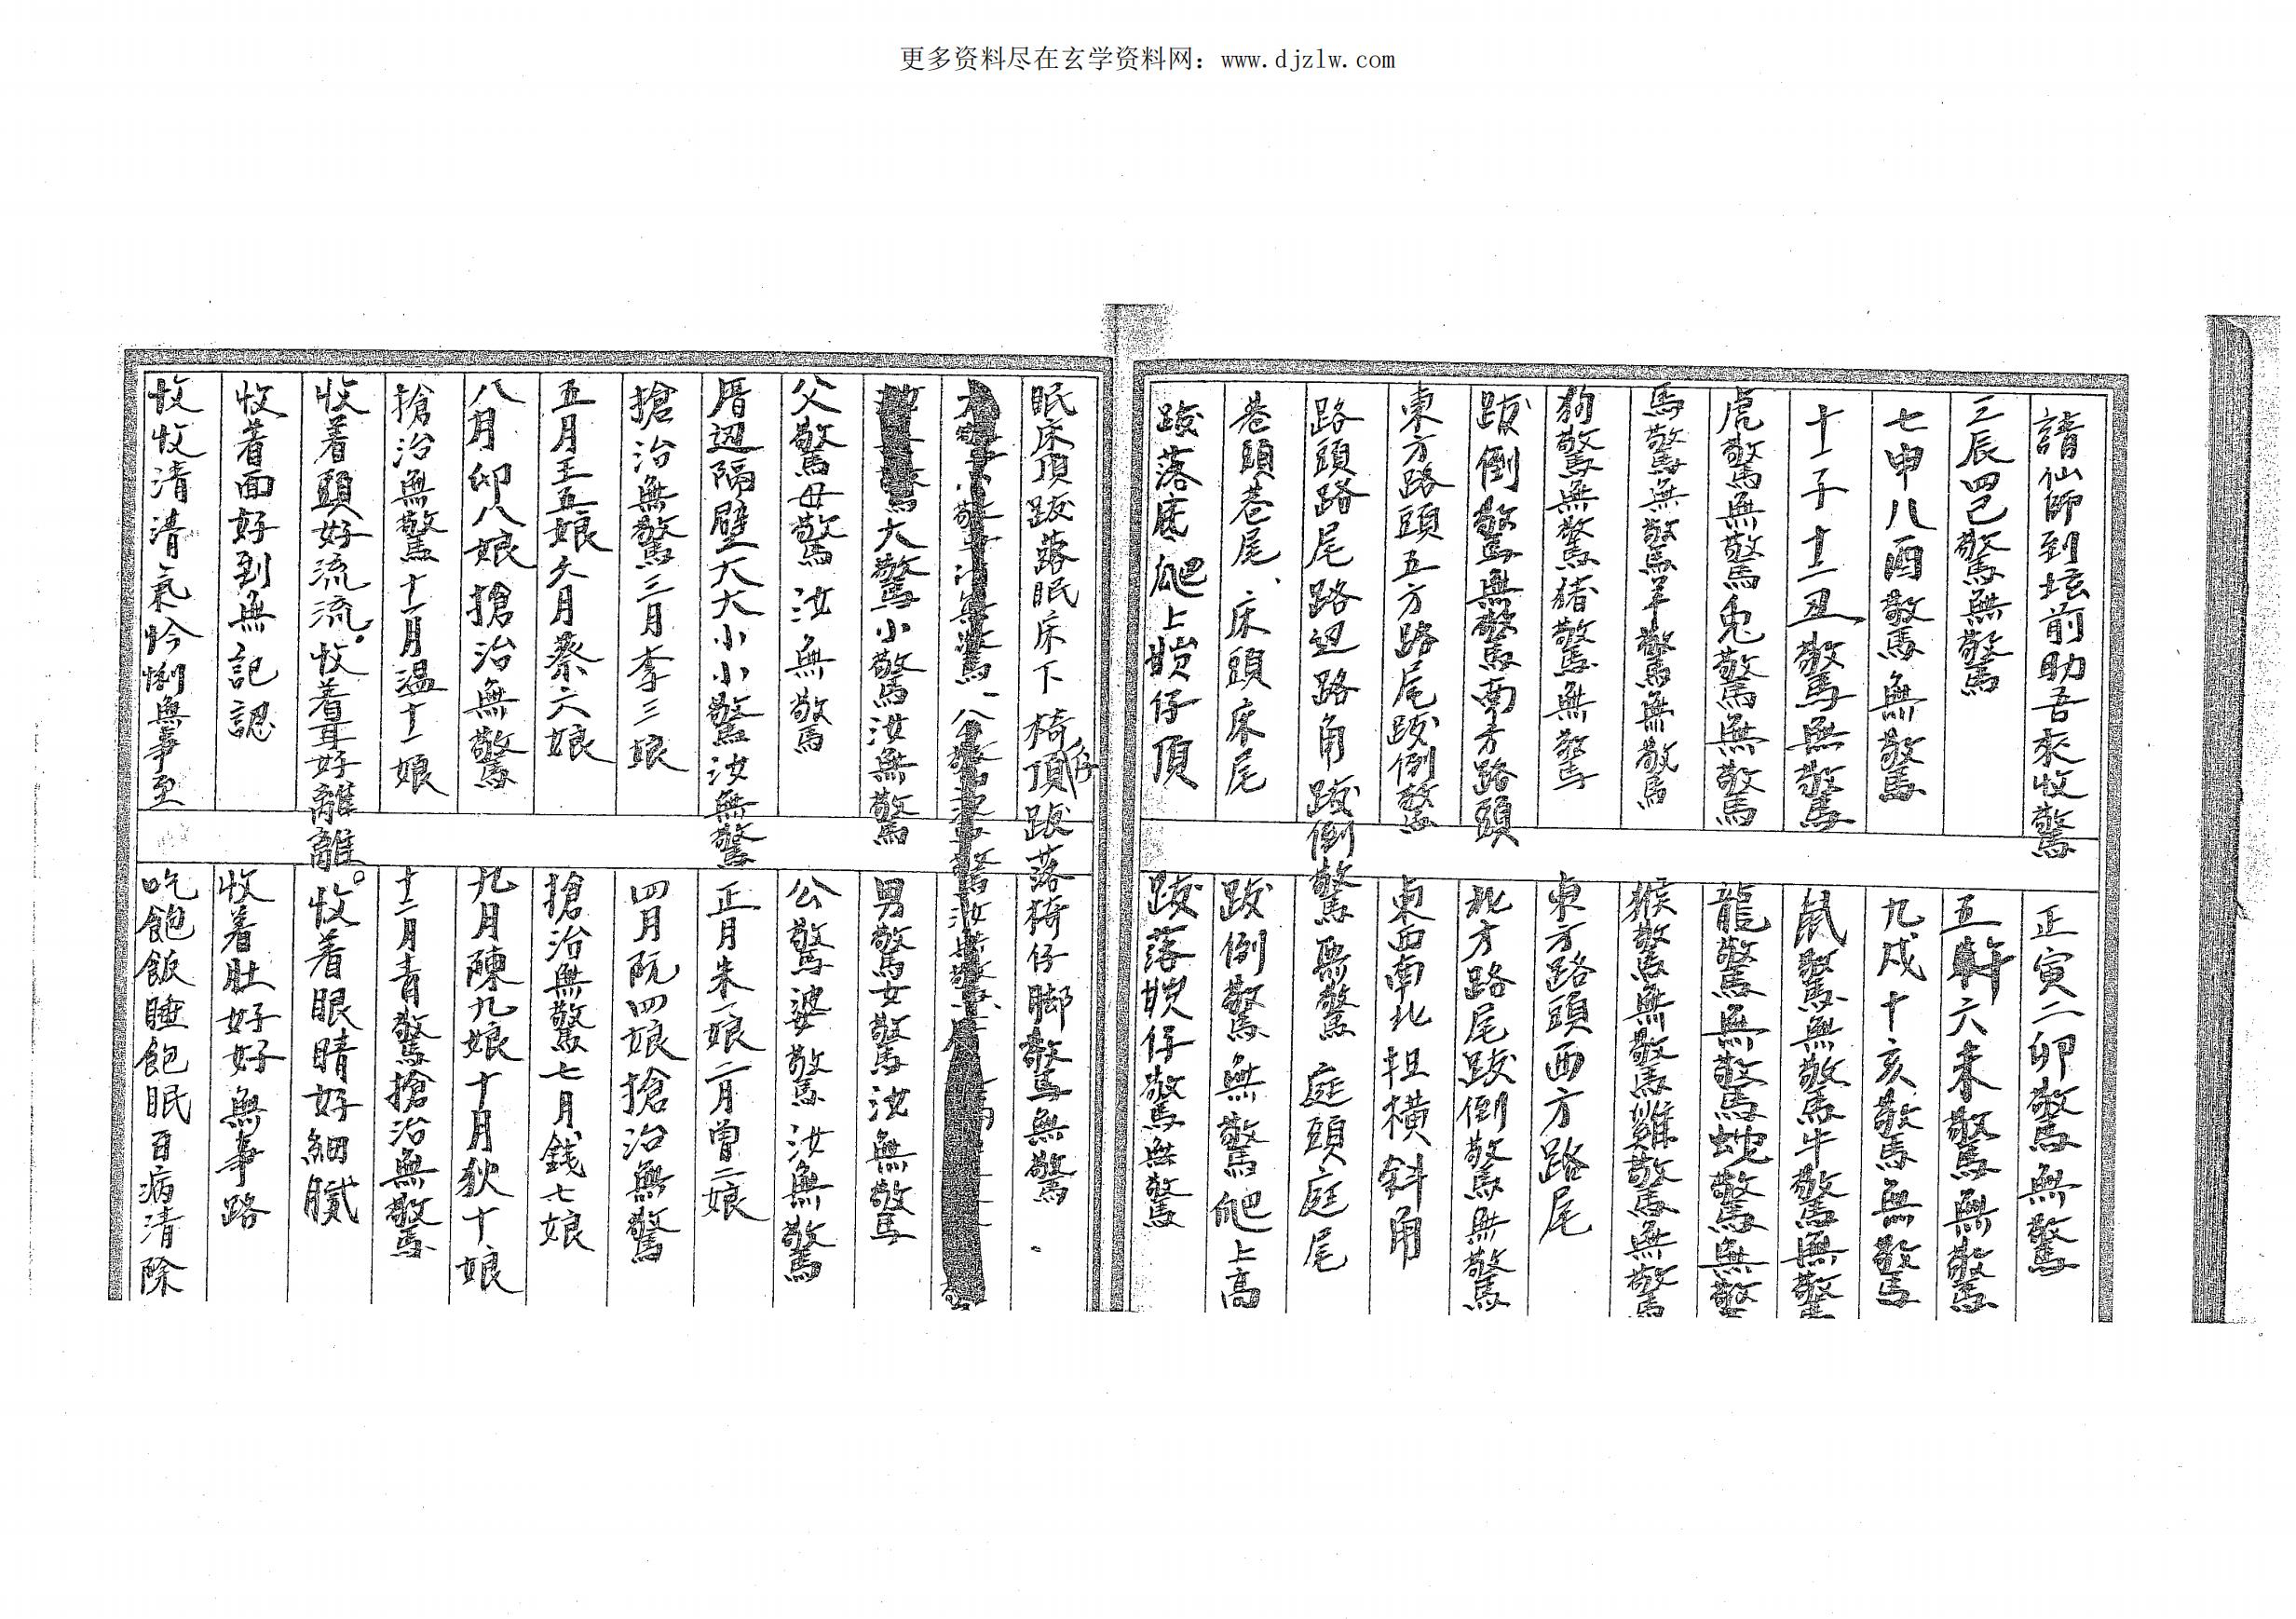 更多资料尽在玄学资料网：www.djzlw.com
請仙師到坛前助吾來收驚 正寅二卯驚無驚
三辰四巳驚無驚 五午六未驚無驚
七申八酉驚無驚 九戌十亥驚無驚
十一子十二丑驚無驚 鼠驚無驚牛驚無驚
虎驚無驚兎驚無驚 龍驚無驚蛇驚無驚
馬驚無驚羊驚無驚 猴驚無驚雞驚無驚
狗驚無驚猪驚無驚 東方路頭西方路尾
跋倒驚無驚南方路頭 北方路尾跋倒驚無驚
東方路頭五方路尾跋倒驚 東西南北担橫斜角
路頭路尾路边路角跋倒驚無驚 庭頭庭尾
巷頭巷尾、床頭床尾 跋倒驚無驚爬上高
跋落底爬上仔頂 跋落仔驚無驚
眠床頂跋落眠床下椅仔頂跋落椅仔脚驚無驚
大驚小驚汝無驚 男驚女驚汝無驚
父驚母驚汝無驚 公驚婆驚汝無驚
厝边隔壁大大小小驚汝無驚 正月朱一娘二月曾二娘
搶治無驚三月李三娘 四月阮四娘搶治無驚
五月王五娘六月蔡六娘 搶治無驚七月錢七娘
八月卯八娘搶治無驚 九月陳九娘十月狄十娘
搶治無驚十一月温十一娘 十二月青驚搶治無驚
收着頭好流流。收着耳好離離。收着眼睛好細膩
收着面好到無記認 收着肚好好無事路
收收清清氣伶俐無事至 吃飽飯睡飽眠百病清除